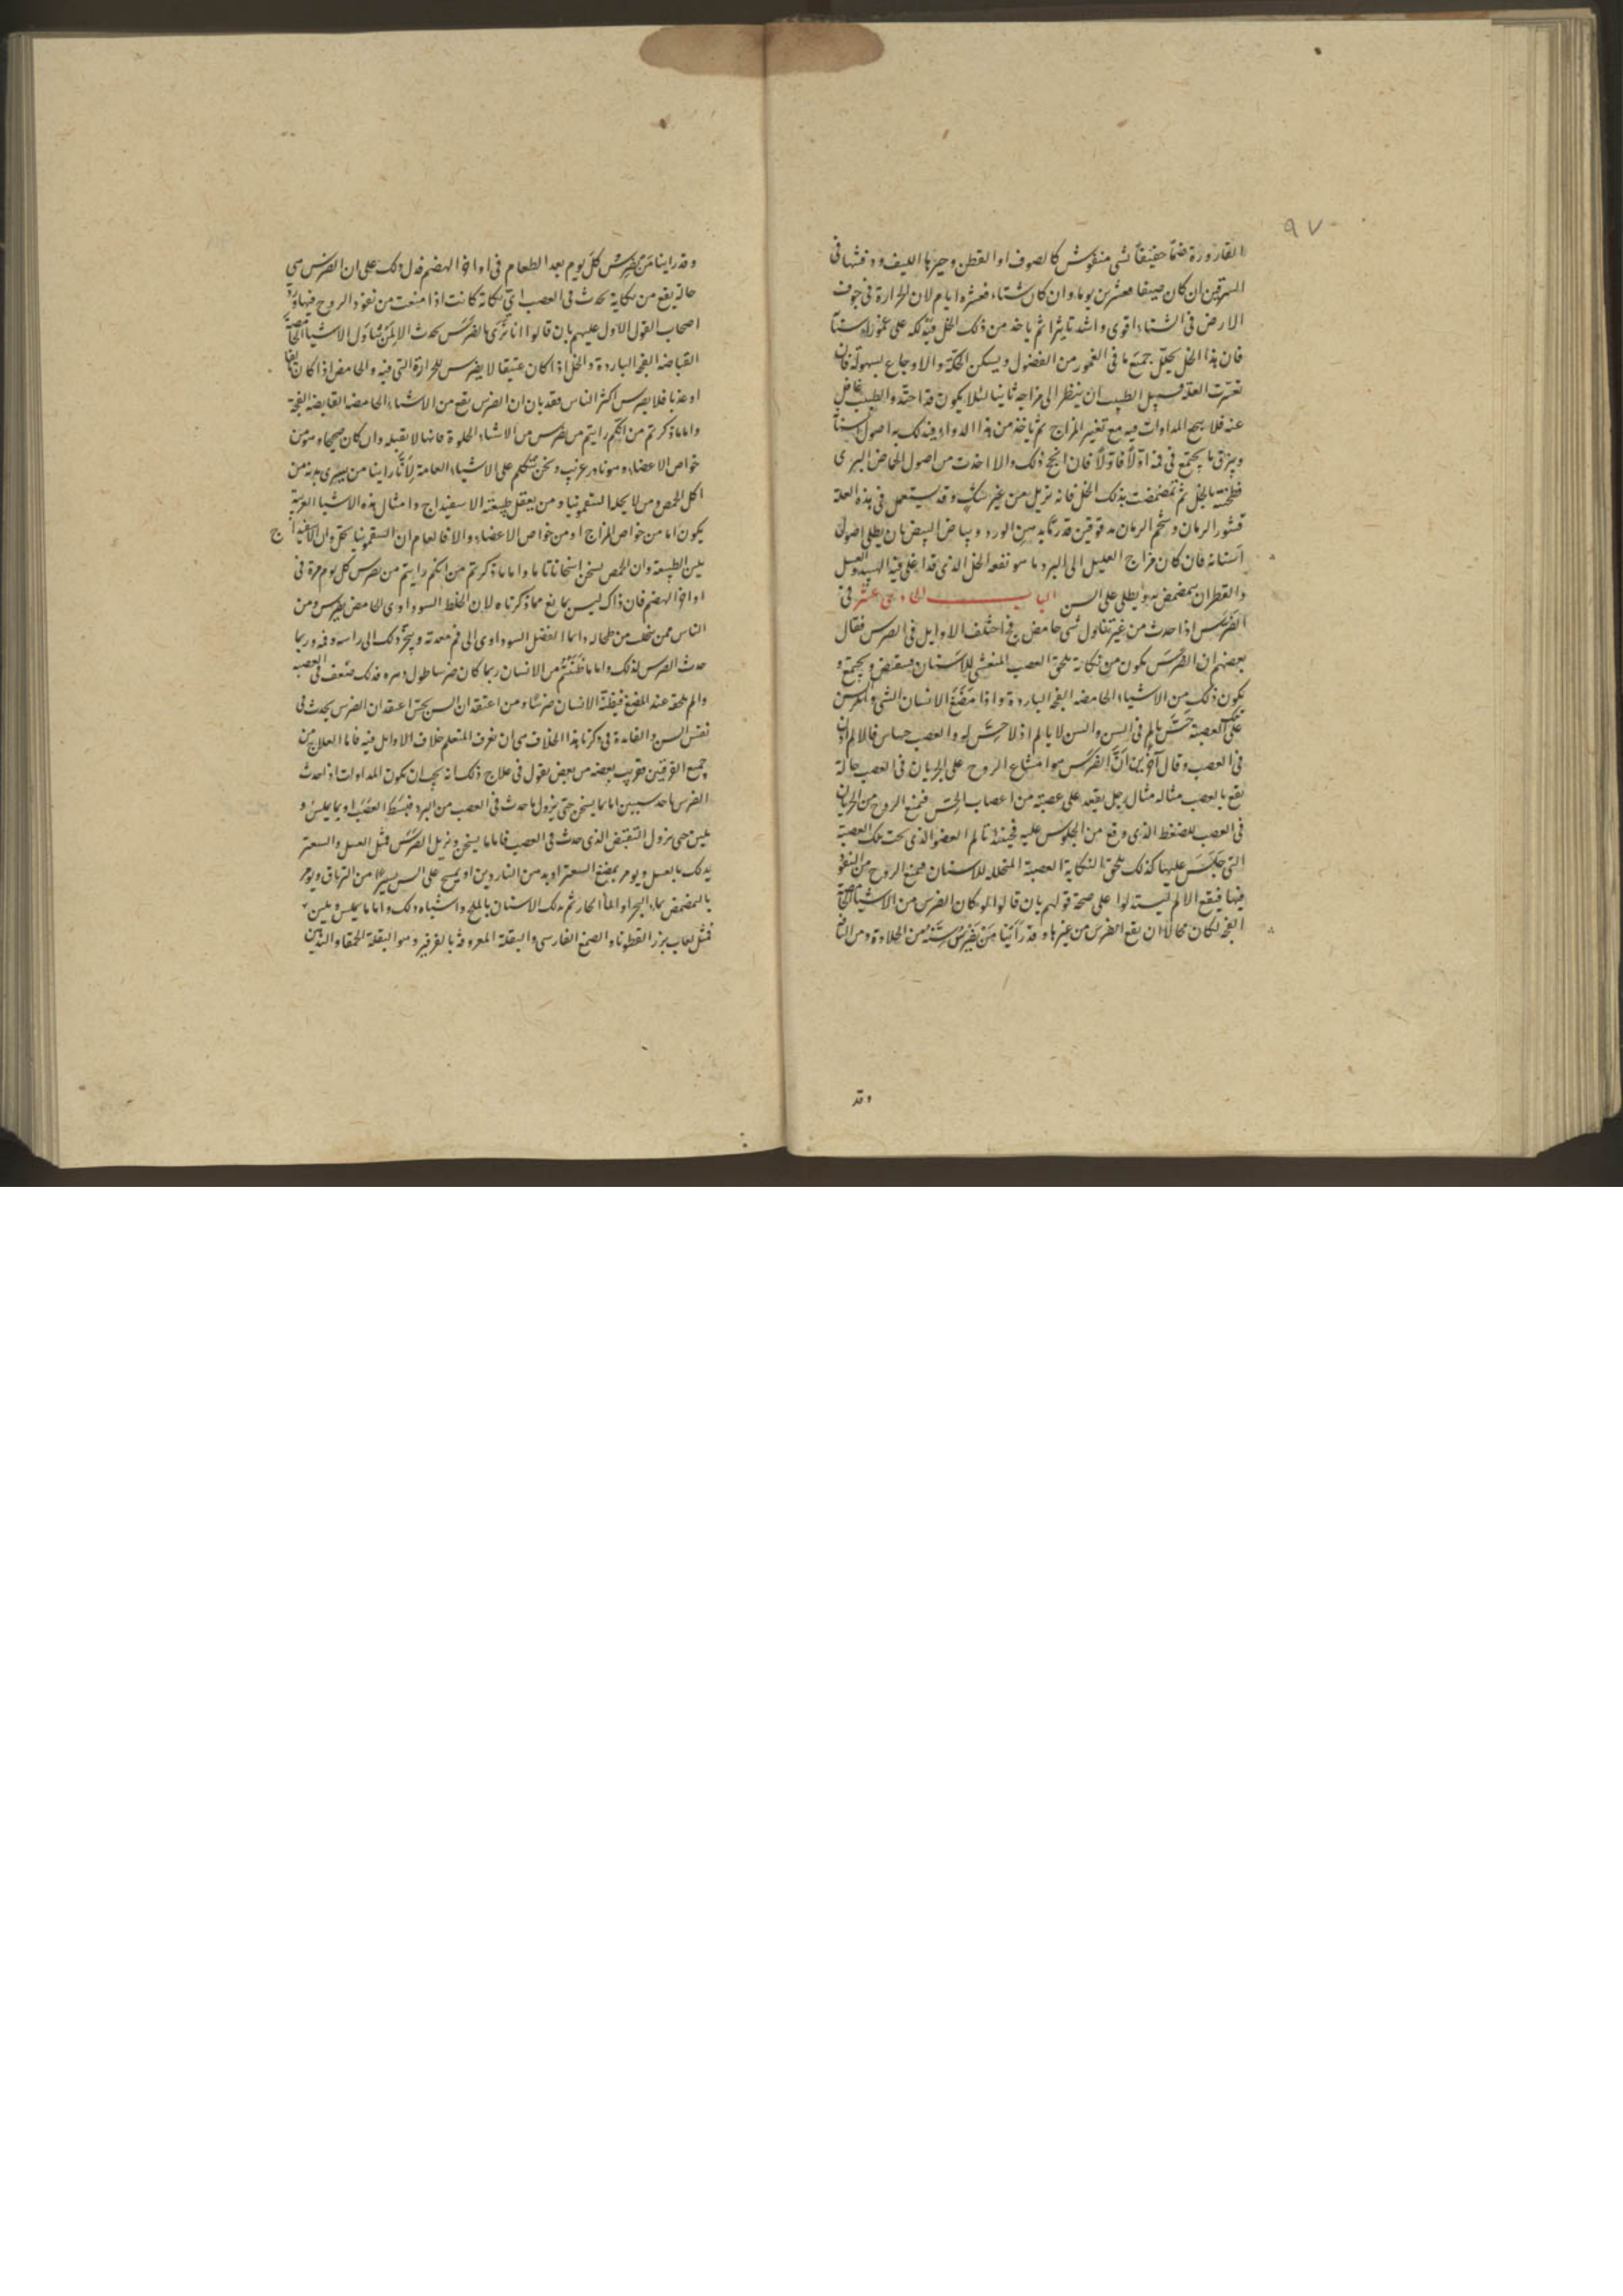 ٩٧
القارورة ضماً خفيفاً بشى منفوش كالصوف او القطن وخيرها الليف ودفنتها فى
السرقين ان كان صيفا فعشرين يوما وان كان شتاء فعشرة ايام لان الحرارة فى جوف
الارض فى الشتاء اقوى واشد تاثيرا ثم ياخذ من ذلك الخل فيدلكه على عمور اسنا
فان هذا الخل يحلل جميع ما فى الغمور من الفضول ويسكن الحكة والاوجاع بسهولة فان
تعسرت العلة فسبيل الطبيب ان ينظر الى مزاجه ثانيا لئلا يكون قد احتد والطبيب غافل
عنه فلا ينجح المداوات فيه مع تغير المزاج ثم تاخذ من هذا الدواء فيدلك به اصول اسنا
ويبزق ما يجتمع فى فمه اولاً فاولاً فان انجح ذلك والا اخذت من اصول الحماض البرى
فطبخته بالخل ثم تمضمضت بذلك الخل فانه يزيل من غير شك وقد يستعمل فى هذه العلة
قشور الرمان وشحم الرمان مدقوقين قدر ما به من الورد وبياض البيض بان يطلى اصول
اسنانه فان كان مزاج العليل الى البرد ما هو نفعه الخل الذى قد اغلى فيه الهبيد والعسل
والقطران يتمضمض به ويطلى على السن الباب الحادى عشر فى
الضرس اذا حدث من غير تناول شى حامض ج قد اختلف الاوايل فى الضرس فقال
بعضهم ان الضرس يكون من نكاية تلحق العصب المنغشى للاسنان فينقبض ويجتمع و
يكون ذلك من الاشياء الحامضه الفجه الباردة واذا مضغ الانسان الشى وانكبس
على العصبة حس بالم فى السن والسن لا يالم اذ لا حس له والعصب حساس فالالم اذن
فى العصب وقال آخرين ان الضرس هو امتناع الروح على الجريان فى العصب حالة
تقع بالعصب مثاله مثال رجل يقعد على عصبة من اعصاب الحس فيمنع الروح من الجريان
فى العصب للضغط الذى وقع من الجلوس عليه فحينئذ تالم العضو الذى تحت تلك العصبة
التى جلس عليها كذلك تلحق النكاية العصبة المتخللة للاسنان فيمنع الروح من النفو
فيها فيقع الالم ليستدلوا على صحة قولهم بان قالوا لو كان الضرس من الاشياء الحامضة
الفجه لكان محالاً ان يقع الضرس من غيرها وقد رأينا من يضرس سنه من الحلاوة ومن النا
وقد
وقد راينا من يضرس كل يوم بعد الطعام فى اواخر الهضم فدل ذلك على ان الضرس هى
حالة يقع من نكاية تحدث فى العصب اى نكاية كانت اذا منعت من نفوذ الروح فيها ورد
اصحاب القول الاول عليهم بان قالوا انا نرى الضرس يحدث الا لمن تناول الاشيا الحامضة
القباضه الفجه الباردة والخل اذا كان عتيقا لا يضرس للحرارة التى فيه والحامض اذا كان
او عذبا فلا يضرس اكثر الناس فقد بان ان الضرس يقع من الاشياء الحامضه القابضه الفجة
واما ما ذكرتم من انكم رايتم من يضرس من الاشياء الحلوة فانها لا نقبله وان كان صحيحا فهو من
خواص الاعضاء وهو نادر غريب ونحن نتكلم على الاشياء العامة لانا راينا من يبترى بدنه من
اكل الحمص ومن لا يحله السقمونيا ومن يعتقل طبيعته الاسفيداج وامثال هذه الاشيا الغريبة
يكون اما من خواص المزاج او من خواص الاعضاء والا فالعام ان السقمونيا يحل وان الاسفيداج
يلين الطبيعة وان الحمص يسخن اسخانا تاما واما ما ذكرتم من انكم رايتم من يضرس كل يوم مرة فى
اواخر الهضم فان ذاك ليس بمانع مما ذكرناه لان الخلط السوداوى الحامض يضرس ومن
الناس ممن ينجلب من طحاله دائما الفضل السوداوى الى فم معدته ويبخر ذلك الى راسه وفمه وربما
حدث الضرس لذلك واما ما ظننتم من الانسان ربما كان ضرسا طول دهره فذلك ضعف فى العصبه
والم يلحقه عند المضغ فيظنه الانسان ضرسا ومن اعتقد ان السن يحس اعتقد ان الضرس يحدث فى
نفس السن والفايدة فى ذكرنا هذا الخلاف هى ان نعرف المتعلم خلاف الاوايل فيه فاما العلاج من
جميع الفرقتين فقريب بعضه من بعض نقول فى علاج ذلك انه يجب ان يكون المداوات اذا حدث
الضرس باحد سببين اما بما يسخن حتى يزول ما حدث فى العصب من البرد فينبسط العصب او بما يملس و
يلين حتى يزول التقبض الذى حدث فى العصب فاما ما يسخن ويزيل الضرس فمثل العسل والسعتر
يدلك بالعسل ويومر بمضغ السعتر او يدهن الناردين او يمسح على السن يسيرا من الترياق ويومر
بالتمضمض بماء البحر او الماء الحار ثم يدلك الاسنان بالملح واشباه ذلك واما ما يملس ويلين
فمثل لعاب بزر القطونا والصمغ الفارسى والبقلة المعروفة بالفرفير وهو البقلة الحمقا والدهن